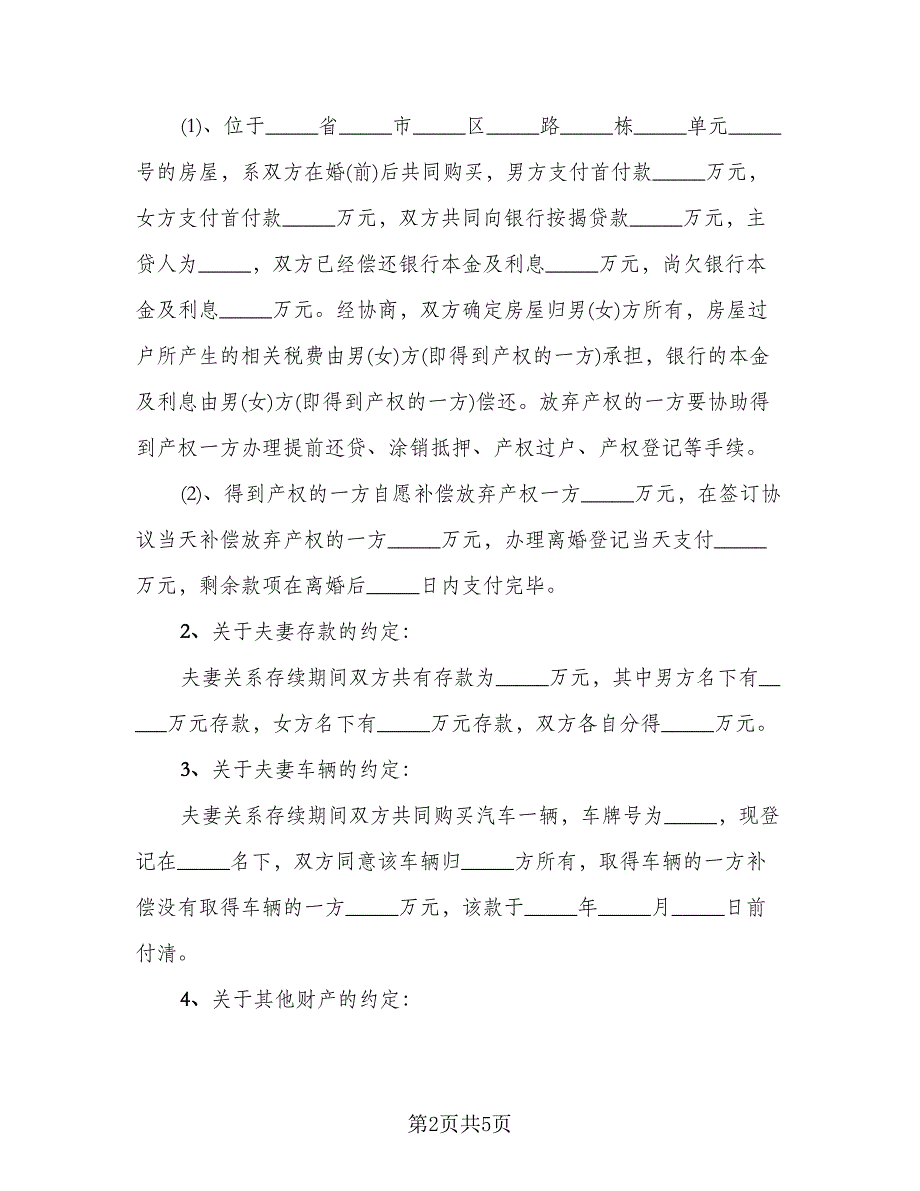 (1)、位于_____省_____市_____区_____路_____栋_____单元_____
号的房屋，系双方在婚(前)后共同购买，男方支付首付款_____万元，
女方支付首付款_____万元，双方共同向银行按揭贷款_____万元，主
贷人为_____，双方已经偿还银行本金及利息_____万元，尚欠银行本
金及利息_____万元。经协商，双方确定房屋归男(女)方所有，房屋过
户所产生的相关税费由男(女)方(即得到产权的一方)承担，银行的本金
及利息由男(女)方(即得到产权的一方)偿还。放弃产权的一方要协助得
到产权一方办理提前还贷、涂销抵押、产权过户、产权登记等手续。
(2)、得到产权的一方自愿补偿放弃产权一方_____万元，在签订协
议当天补偿放弃产权的一方_____万元，办理离婚登记当天支付_____
万元，剩余款项在离婚后_____日内支付完毕。
2、关于夫妻存款的约定：
夫妻关系存续期间双方共有存款为_____万元，其中男方名下有__
___万元存款，女方名下有_____万元存款，双方各自分得_____万元。
3、关于夫妻车辆的约定：
夫妻关系存续期间双方共同购买汽车一辆，车牌号为_____，现登
记在_____名下，双方同意该车辆归_____方所有，取得车辆的一方补
偿没有取得车辆的一方_____万元，该款于_____年_____月_____日前
付清。
4、关于其他财产的约定：
第2页共5页